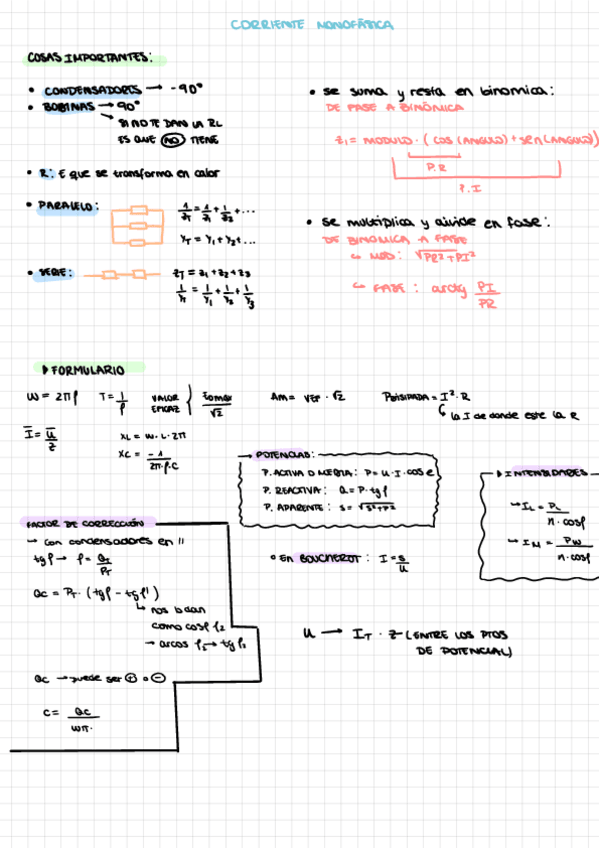 CORRIENTE MONOFÁSICA
COSAS IMPORTANTES:
• CONDENSADORES → -90°
• BOBINAS → 90°
↳ SI NO TE DAN LA RL
ES QUE NO TIENE
• R: E que se transforma en calor
• PARALELO:
1/ZT = 1/Z1 + 1/Z2 + ...
YT = Y1 + Y2 + ...
• SERIE:
ZT = Z1 + Z2 + Z3
1/YT = 1/Y1 + 1/Y2 + 1/Y3
• se suma y resta en binomica:
DE FASE A BINÓMICA
Z1 = MODULO · (COS (ANGULO) + SEN (ANGULO))
P.R
P.I
• se multiplica y divide en fase:
DE BINOMICA A FASE
↳ MOD: √PR²+PI²
↳ FASE: arctg PI/PR
▸ FORMULARIO
W = 2πf
T = 1/f
VALOR
EFICAZ
√2
Am = VEF · √2
= I² · R
↳ la I de donde este la R
I = U/Z
XL = W · L · 2π
XC = -1/2π·f·C
→ POTENCIAS:
P. ACTIVA O MEDIA: P = U · I · COS φ
P. REACTIVA: Q = P · tg φ
P. APARENTE: S =
▸ INTENSIDADES
→ IL = PL/n·cosφ
→ IM = PM/n·cosφ
FACTOR DE CORRECCIÓN
→ Con condensadores en //
tgφ → φ = QT/PT
QC = PT · (tgφ - tgφ')
↳ nos la dan
como cosφ2
→ arcos φ2 → tgφ2
QC → puede ser + o -
C = QC/
• EN BOUCHEROT: I = S/U
U → IT · Z (ENTRE LOS PTOS
DE POTENCIAL)